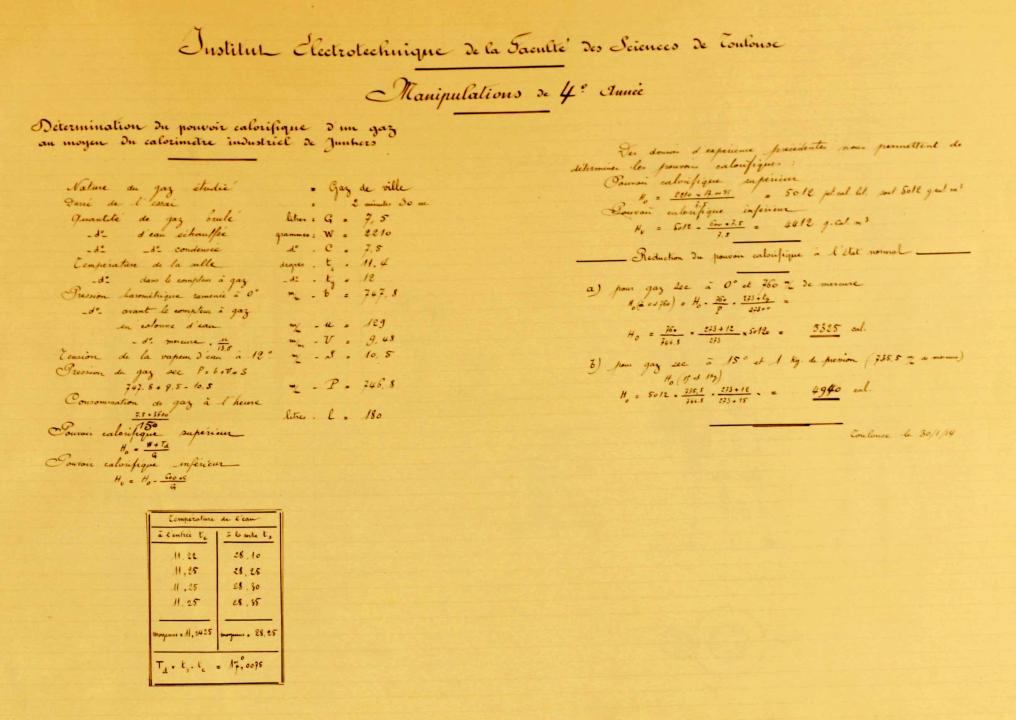 Institut Électrotechnique de la Faculté des Sciences de Toulouse
Manipulations de 4e Année
Détermination du pouvoir calorifique d'un gaz
au moyen du calorimètre industriel de Junkers
Nature du gaz étudié = Gaz de ville
Durée de l'essai = 2 minutes 30 s
Quantité de gaz brulé litres : G = 7,5
-d°- d'eau échauffée grammes : W = 2210
-d°- -d°- condensée d° - C = 7,5
Température de la salle degrés - t = 11,4
-d°- dans le compteur à gaz -d°- - tg = 12
Pression barométrique ramenée à 0° m/m - b = 747,8
-d°- avant le compteur à gaz
en colonne d'eau m/m - u = 129
-d°- mercure = u/13,6 m/m - V = 9,48
Tension de la vapeur d'eau à 12° m/m - S = 10,5
Pression du gaz sec P = b + v - S
747,8 + 9,5 - 10,5 m/m - P = 746,8
Consommation de gaz à l'heure
7,5 × 3600 / 150 litres - l = 180
Pouvoir calorifique supérieur
H0 = W × Td / G
Pouvoir calorifique inférieur
Hi = H0 - 600 × c / G
Température de l'eau
à l'entrée te à la sortie ts
11,22 28,10
11,25 28,25
11,25 28,30
11,25 28,35
moyenne = 11,2425 moyenne = 28,25
Td = ts - te = 17°,0075
Des données d'expérience précédentes nous permettent de
déterminer les pouvoirs calorifiques :
Pouvoir calorifique supérieur
= 5012 soit 5012 g.cal m3
Pouvoir calorifique inférieur
Hi = 5012 - 600 × 7,5 / 7,5 = 4412 g.cal m3
Réduction du pouvoir calorifique à l'état normal
a) pour gaz sec à 0° et 760 m/m de mercure
H0 (0° et 760) = H0 · 760/P · 273 + tg / 273 =
H0 = 760/746,8 × 273 + 12 / 273 × 5012 = 5325 cal.
b) pour gaz sec à 15° et 1 kg. de pression (735,5 m/m de mercure)
H0 (15° et 1kg)
H0 = 5012 × 735,5/746,8 × 273 + 12 / 273 + 15 = 4940 cal.
Toulouse le 30/1/14